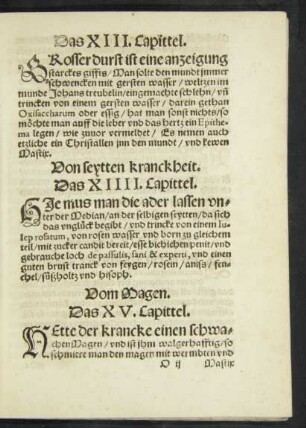 Das XIII. Capittel.
Grosser durst ist eine anzeigung
starckes giffts / Man solte den mundt jmmer
schwencken mit gersten wasser / weltzen im
munde Johans treubelin / eingemachte schlehn / vñ
trincken von einem gersten wasser / darein gethan
Oxisaccharum oder essig / hat man sonst nichts / so
möchte man auff die leber vnd das hertz ein Epithe-
ma legen / wie zuuor vermeldet / Es nemen auch
ettliche ein Christallen jnn den mundt / vnd kewen
Mastix.
Von seytten kranckheit.
Das XIIII. Capittel.
HIe mus man die ader lassen vn-
ter der Median / an der selbigen seytten / da sich
das vnglück begibt / vnd trincke von einem Iu-
lep rosatum, von rosen wasser vnd born zu gleichem
teil / mit zucker candit bereit / esse bichichen penit / vnd
gebrauche loch de passulis, sani & experti, vnd einen
guten brust tranck von feygen / rosein / anisa / fen-
chel / süßholtz vnd hisoph.
Vom Magen.
Das XV. Capittel.
HEtte der krancke einen schwa-
chen Magen / vnd ist jhm walgerhafftig / so
schmirre man den magen mit wermbten vnd
O ij Mastix